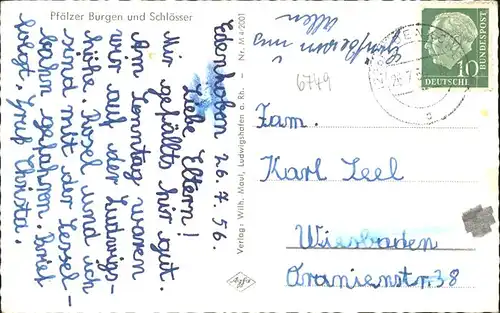 Pfälzer Burgen und Schlösser
Edenkoben 26.7.56.
Liebe Eltern!
Mir gefällts hir gut.
Am Sonntag waren
wir auf der Ludwigs-
höhe. Rosel und ich
sind mit der Sessel-
bahn gefahren. Brief
folgt. Gruß Christa.
Verlag: Wilh. Maul, Ludwigshafen a. Rh. – Nr. M 4/2001
Agfa
6749
DEUTSCHE
BUNDESPOST
10
Fam.
Karl Seel
Wiesbaden
Oranienstr. 38